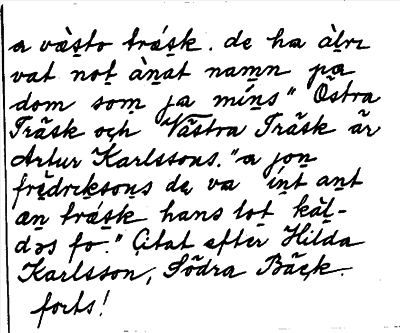 a vä̀s̱to trás̱k. de ha àlrı
vat not ànat namn pa
dom som ja míns" Östra
Träsk och Västra Träsk är
Artur Karlssons. "a jon
frèdrıksons de va int ant
an trás̱k hans lot kàl-
dəs fo." Citat efter Hilda
Karlsson, Södra Bäck.
forts!